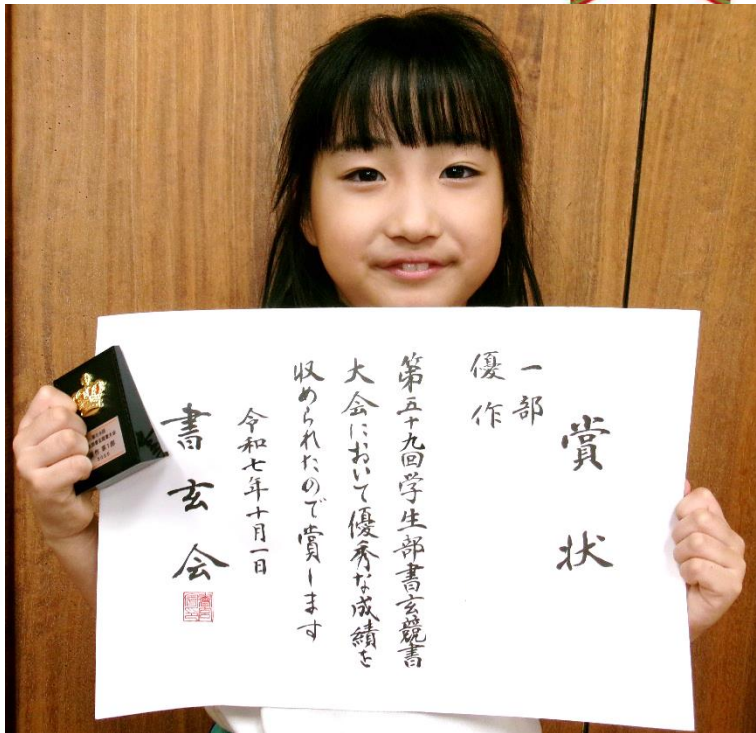 賞状
一部
優作
第五十九回学生部書玄競書
大会において優秀な成績を
収められたので賞します
令和七年十月一日
書玄会